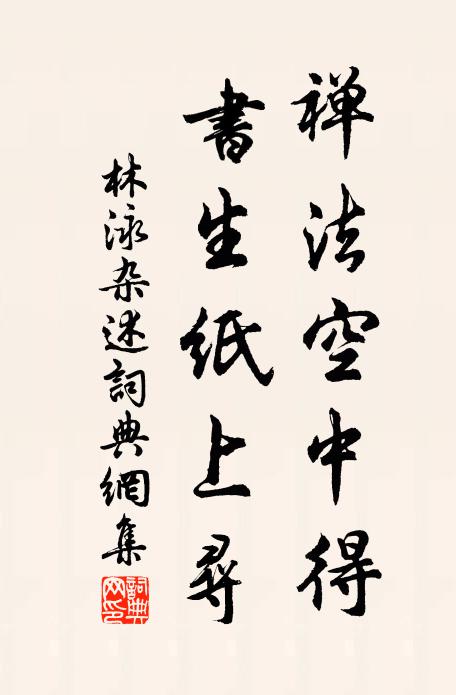 禅法空中得
書生紙上尋
林泳杂述詞典網集
詞典网印